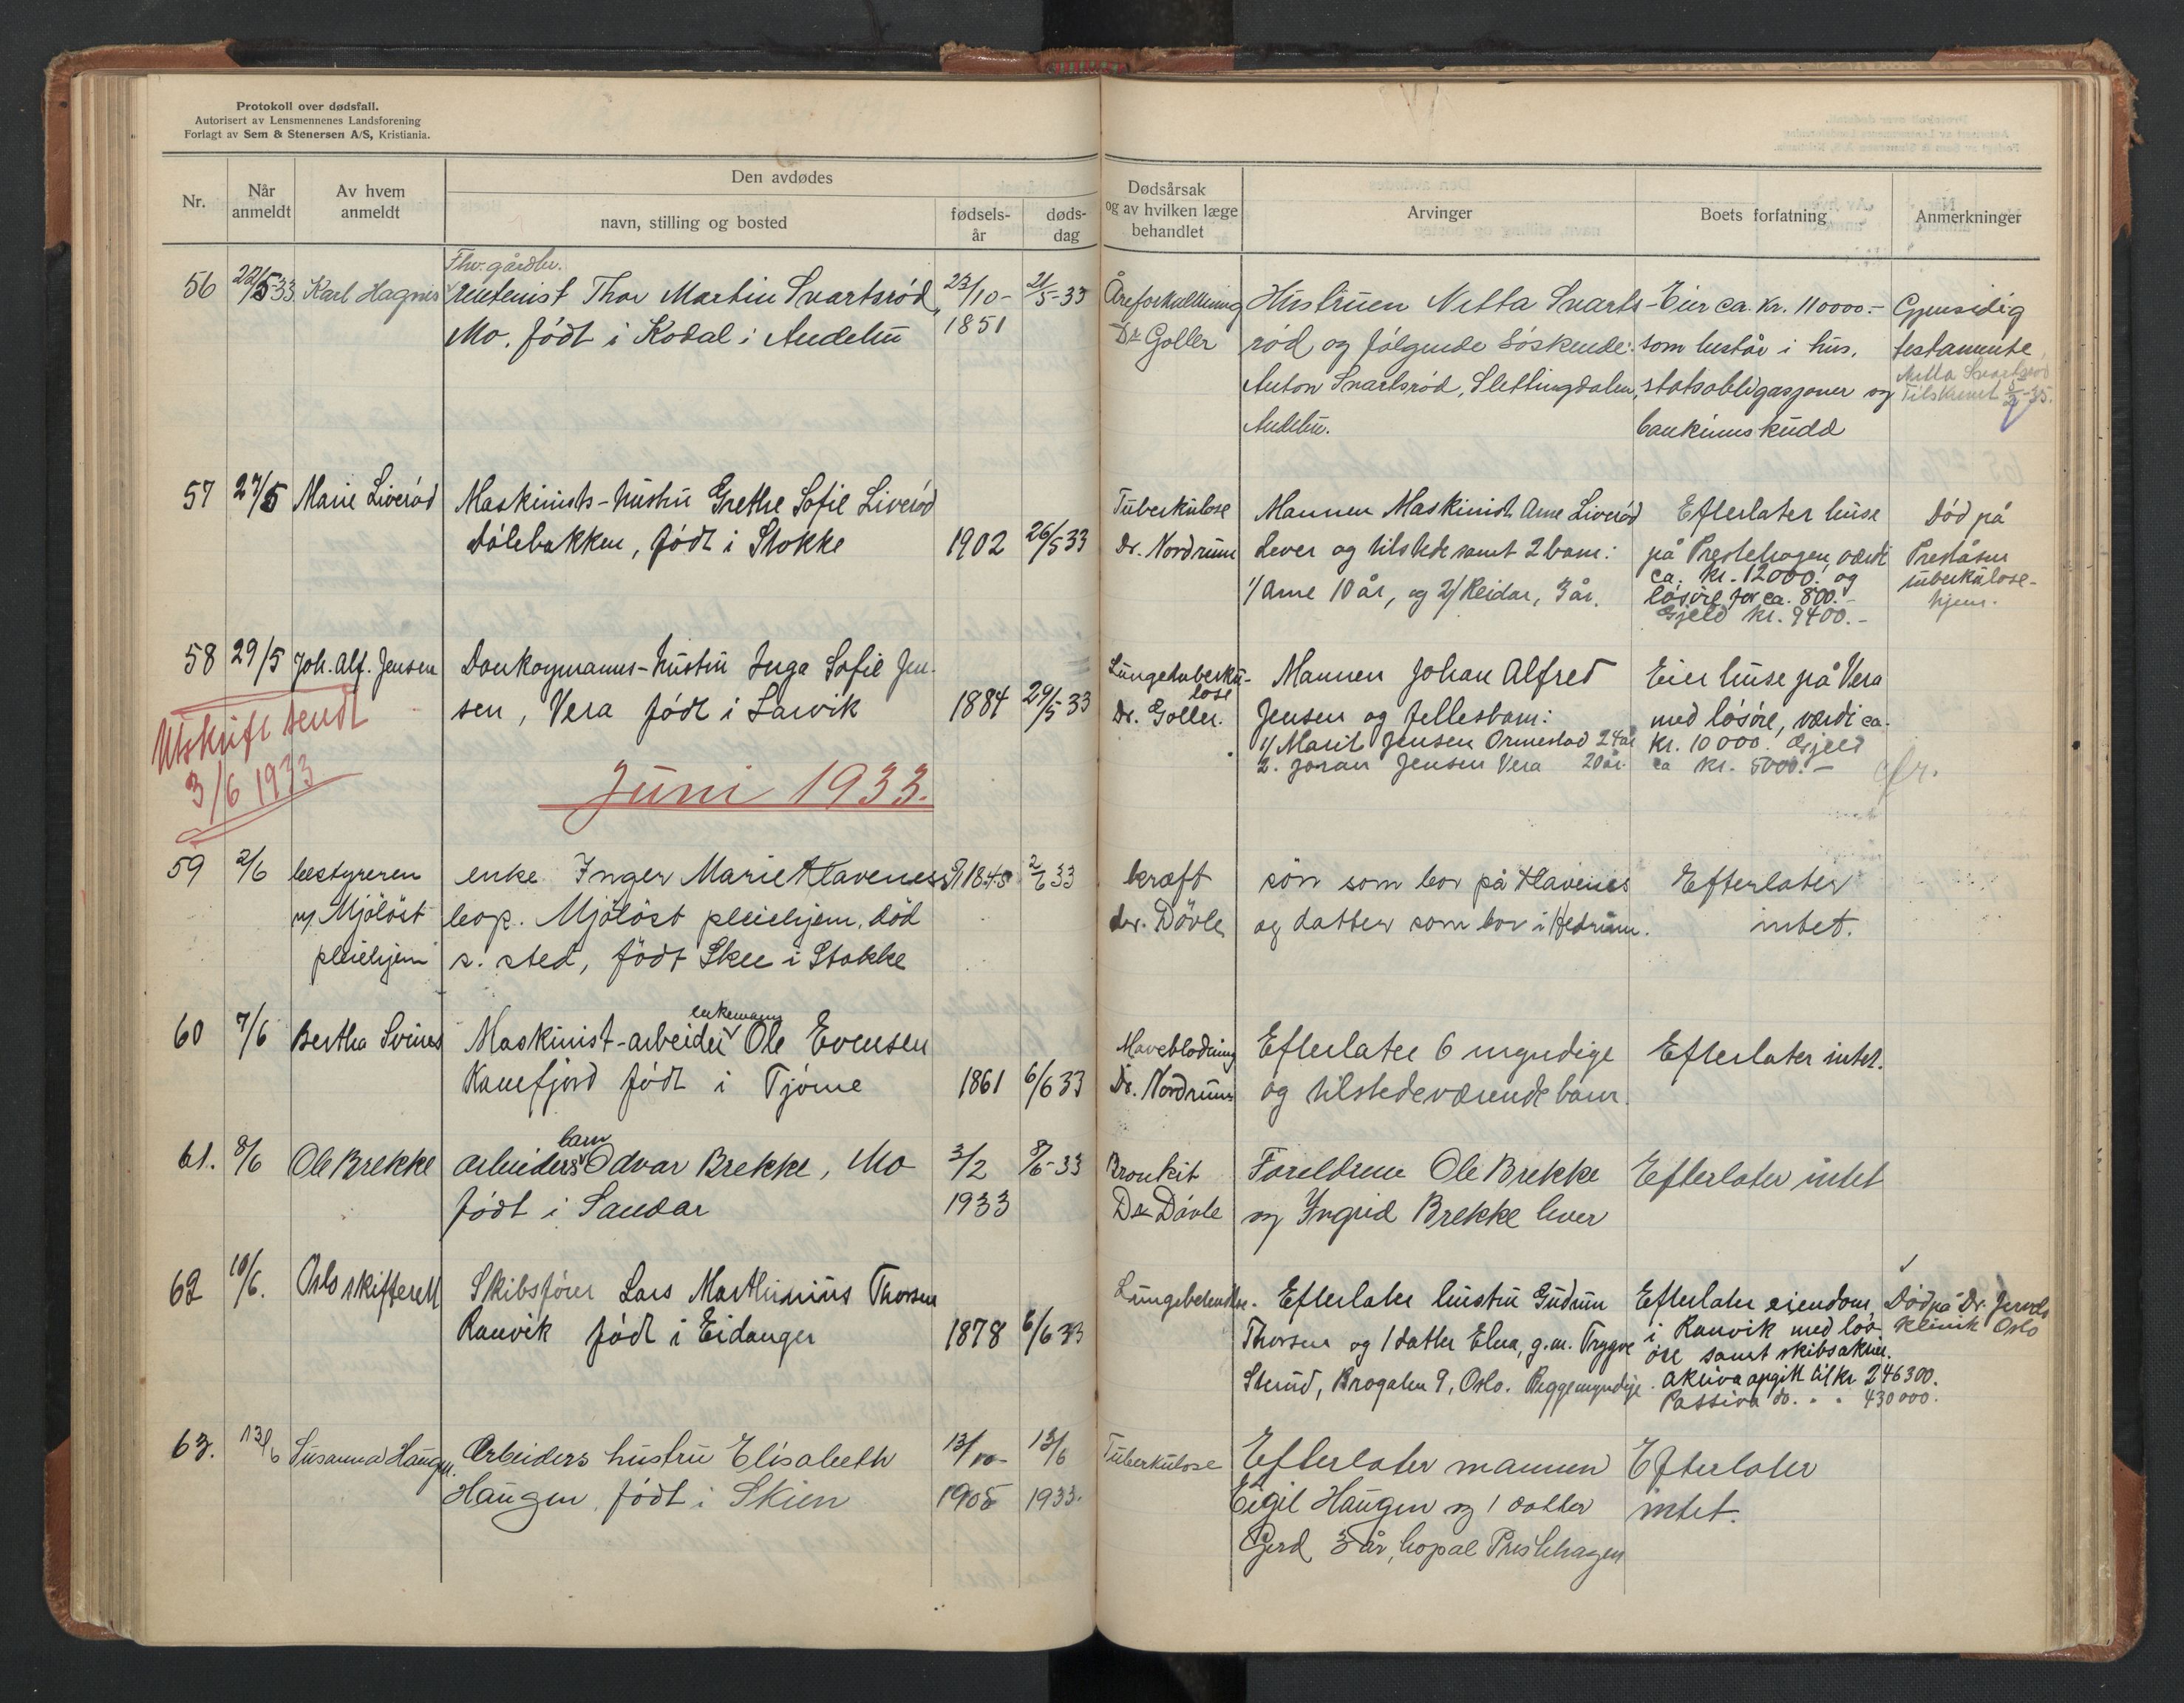 Protokoll over dødsfall.
Autorisert av Lensmennenes Landsforening
Forlagt av Sem & Stenersen A/S, Kristiania.
Nr.
Når anmeldt
Av hvem anmeldt
Den avdødes
navn, stilling og bosted
fødsels-år
døds-dag
Dødsårsak og av hvilken læge behandlet
Arvinger
Boets forfatning
Anmerkninger
56 22/5-33 Karl Hagnes
Fhv. gårdbr.
rentenist Thor Martin Svartsrød, 23/10- 21/5-33
Mo. født i Kodal i Andebu 1851
Åreforkalkning
Dr Goller
Hustruen Netta Svarts-
rød og følgende søskende:
Anton Svartsrød, Slettingdalen,
Andebu.
Eier ca. kr. 110000.-
som består i hus,
statsobligasjoner og
bankinnskudd
Gjensidig
testamente
Netta Svartsrød
Tilskrevet
57 27/5 Marie Liverød
Maskinists-hustru Grethe Sofie Liverød
Dølebakken, født i Stokke 1902 26/5 33
Tuberkulose
Dr. Nordrum
Mannen Maskinist Arne Liverød
lever og tilstede samt 2 barn:
1/ Arne 10 år, og 2/ Reidar, 3 år.
Efterlater huse
på Prestehagen, værdi
ca. kr. 12000. og
løsøre for ca. 800.-
Gjeld kr. 9400.-
Død på
Preståsen
tuberkulose-
hjem.
58 29/5 Joh. Alf. Jensen
Donkeymanns-hustru Inga Sofie Jen-
sen, Vera født i Larvik 1884 29/5 33
Lungetuberku-
lose
Dr. Goller.
Mannen Johan Alfred
Jensen og fellesbarn:
1/ Marit Jensen Ormestad 24 år
2. Johan Jensen Vera 20 år.
Eier huse på Vera
med løsøre, værdi ca.
kr. 10000. Gjeld
ca kr. 5000.-
cfr.
Utskrift sendt
3/6 1933
Juni 1933.
59 2/6 bestyreren
v/ Mjøløst
pleiehjem
enke Inger Marie Klavenes 1845 2/6 33
bop. Mjøløst pleiehjem, død
s. sted, født Skee i Stokke
kræft
dr. Døvle
søn som bor på Klavenes
og datter som bor i Hedrum.
Efterlater
intet.
60 7/6 Bertha Svines
enkemann
Maskinist-arbeider Ole Evensen
Ranefjord født i Tjøme 1861 6/6 33
Maveblødning
Dr. Nordrum
Efterlater 6 myndige
og tilstedeværende barn.
Efterlater intet.
61. 8/6 Ole Brekke
barn
arbeiders Odvar Brekke, Mo 3/2 8/6-33
født i Sandar 1933
Bronkit
Dr Døvle
Foreldrene Ole Brekke
og Yngrid Brekke lever
Efterlater intet
62 10/6. Oslo skifterett
Skibsfører Lars Marthinius Thorsen
Ranvik født i Eidanger 1878 6/6 33
Lungebetendelse.
Efterlater hustru Gudrun
Thorsen og 1 datter Elna, g.m. Trygve
Sterud, Brogaten 9, Oslo. Begge myndige.
Efterlater eiendom
i Ranvik med løs-
øre samt skibsaktier.
Aktiva opgitt til kr 246300.
Passiva do. . . 430000.
Død på Dr. Jervells
klinik Oslo
63. 13/6 Susanna Haugen.
Arbeiders hustru Elisabeth 13/10- 13/6
Haugen, født i Skien 1905 1933.
Tuberkulose
Efterlater mannen
Eigil Haugen og 1 datter
Gerd 3 år, bopæl Prestehagen
Efterlater
intet.